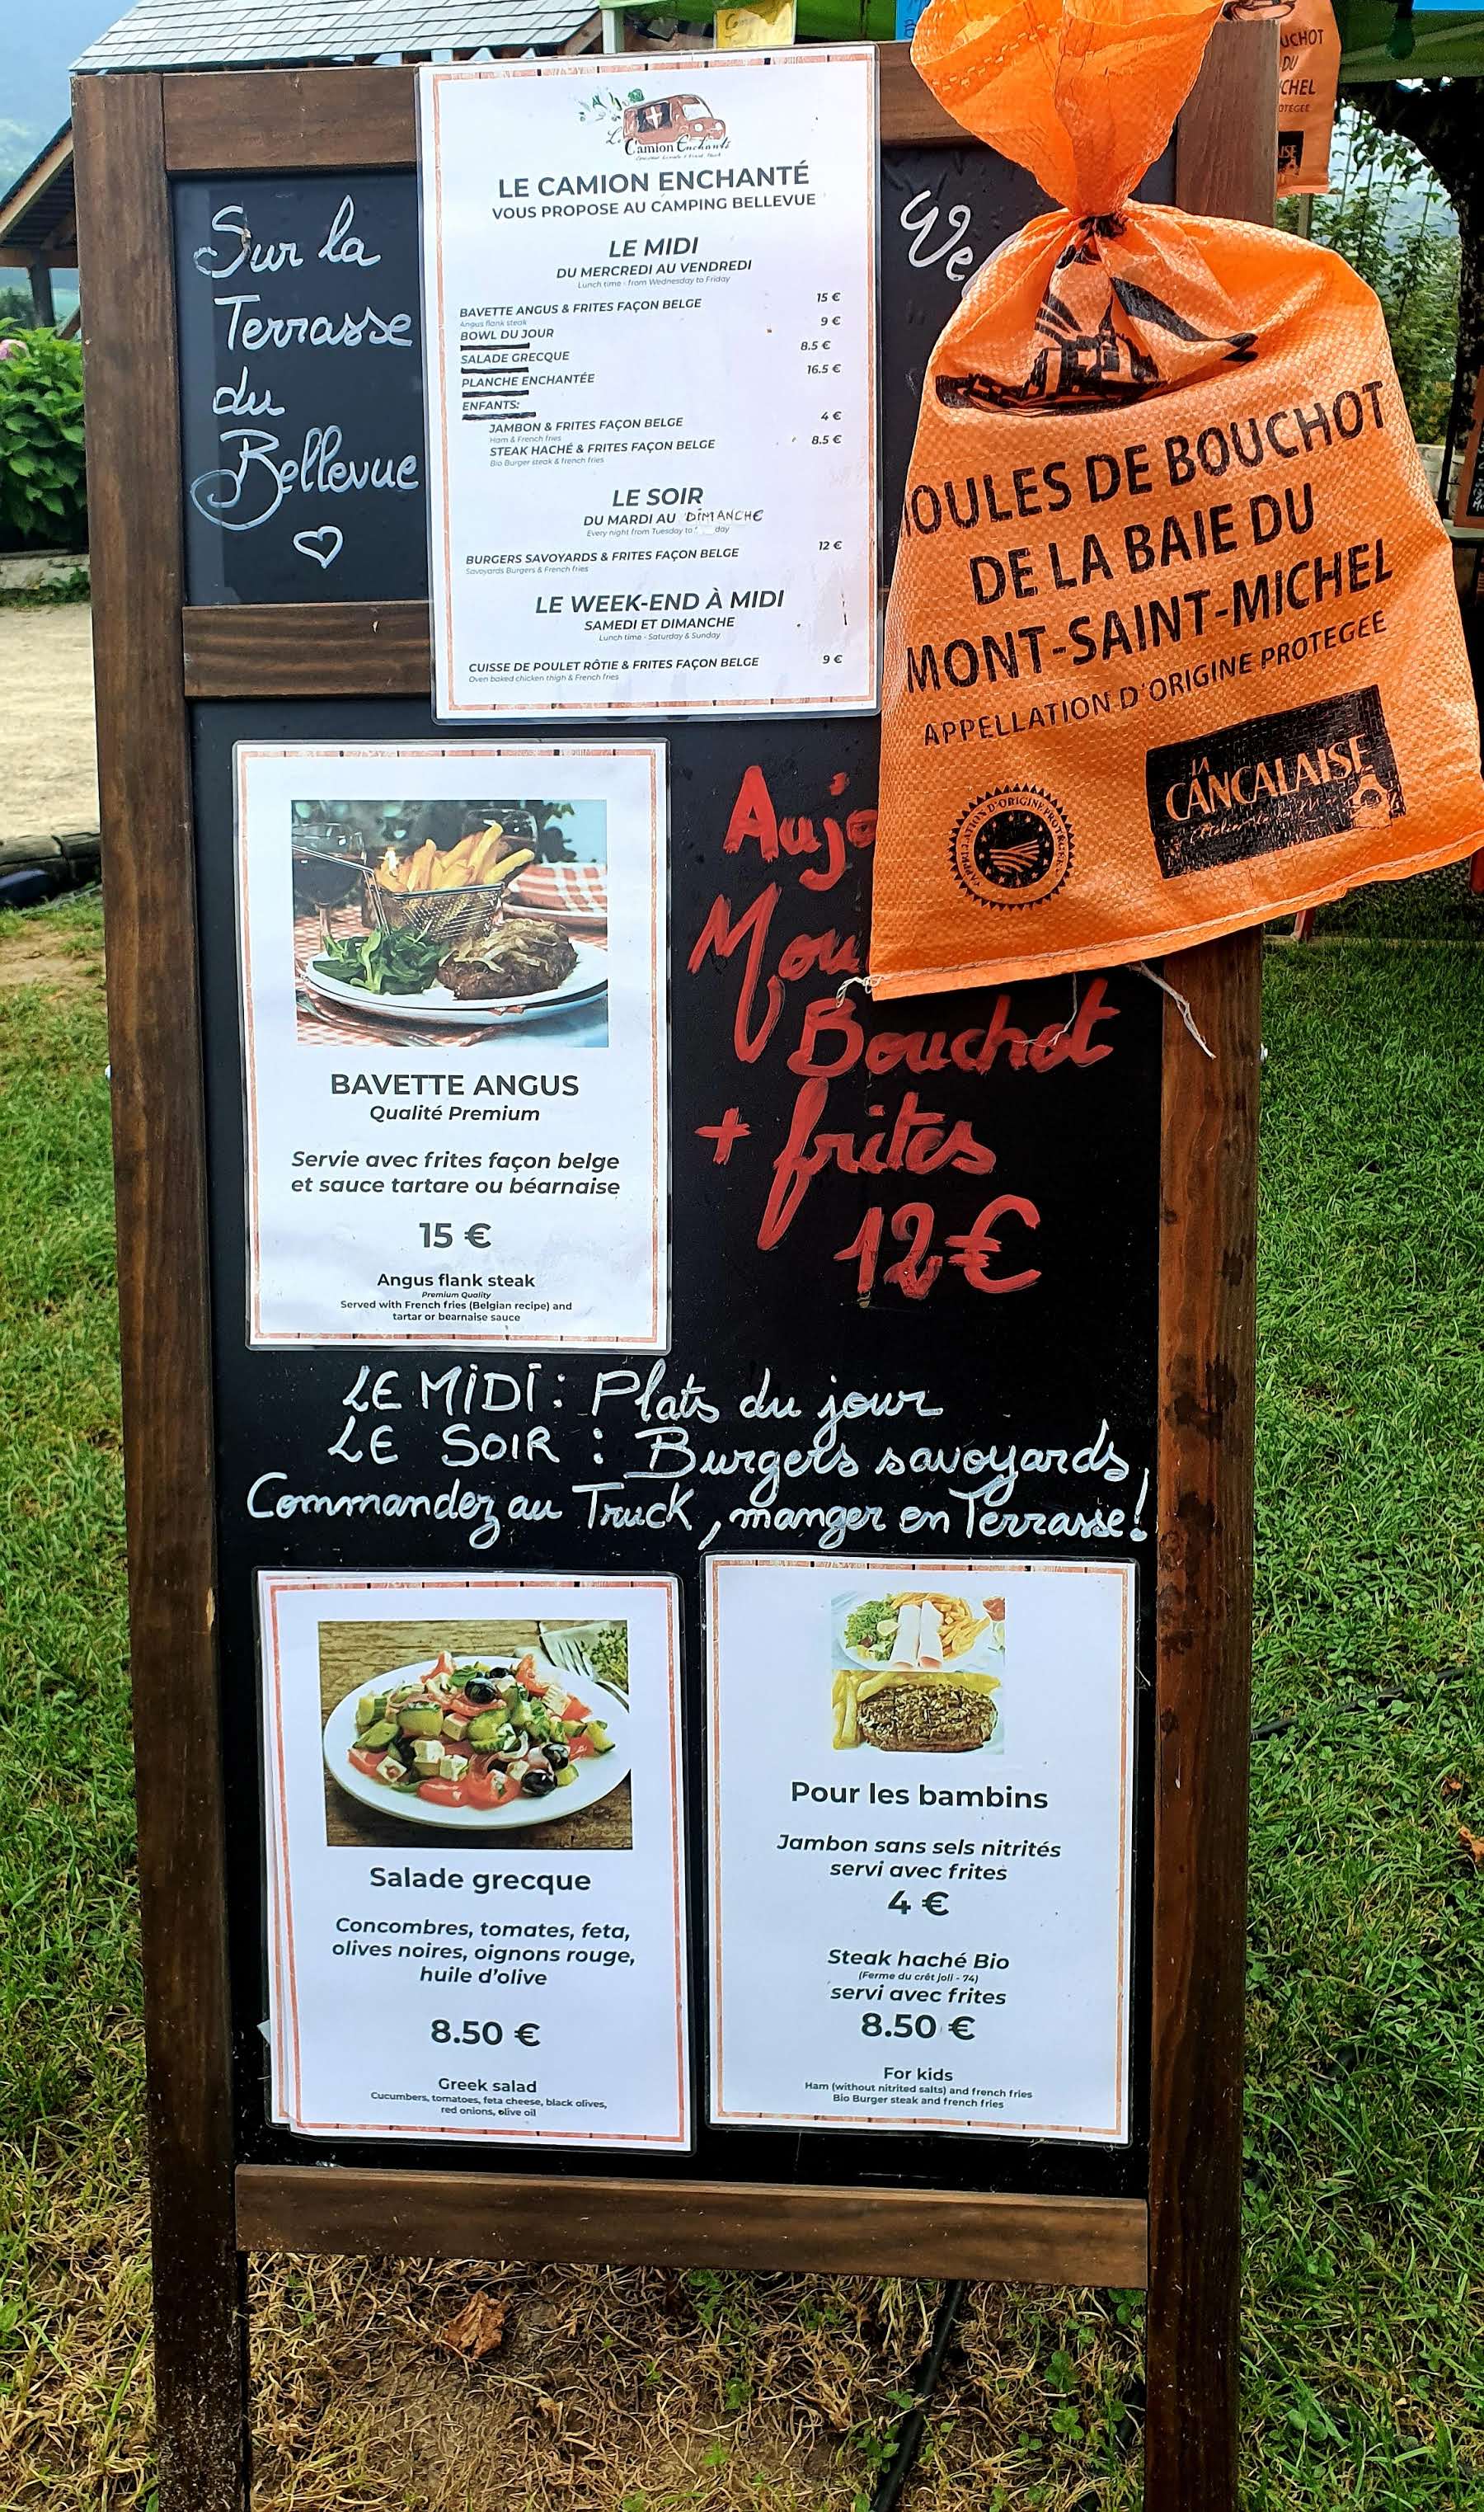 Sur la
Terrasse
du
Bellevue
Le
Camion Enchanté
LE CAMION ENCHANTÉ
VOUS PROPOSE AU CAMPING BELLEVUE
LE MIDI
DU MERCREDI AU VENDREDI
Lunch time - from Wednesday to Friday
BAVETTE ANGUS & FRITES FAÇON BELGE 15 €
Angus flank steak
BOWL DU JOUR 9 €
SALADE GRECQUE 8.5 €
PLANCHE ENCHANTÉE 16.5 €
ENFANTS:
JAMBON & FRITES FAÇON BELGE 4 €
Ham & French fries
STEAK HACHÉ & FRITES FAÇON BELGE 8.5 €
Bio Burger steak & french fries
LE SOIR
DU MARDI AU DIMANCHE
Every night from Tuesday to day
BURGERS SAVOYARDS & FRITES FAÇON BELGE 12 €
Savoyards Burgers & French fries
LE WEEK-END À MIDI
SAMEDI ET DIMANCHE
Lunch time - Saturday & Sunday
CUISSE DE POULET RÔTIE & FRITES FAÇON BELGE 9 €
Oven baked chicken thigh & French fries
We
OULES DE BOUCHOT
DE LA BAIE DU
MONT-SAINT-MICHEL
APPELLATION D'ORIGINE PROTEGEE
LA
CANCALAISE
APPELLATION D'ORIGINE PROTÉGÉE
UCHOT
DU
CHEL
OTEGEE
BAVETTE ANGUS
Qualité Premium
Servie avec frites façon belge
et sauce tartare ou béarnaise
15 €
Angus flank steak
Premium Quality
Served with French fries (Belgian recipe) and
tartar or bearnaise sauce
Aujo
Mou
Bouchot
+ frites
12€
LE MIDI : Plats du jour
LE SOIR : Burgers savoyards
Commandez au Truck, manger en Terrasse!
Salade grecque
Concombres, tomates, feta,
olives noires, oignons rouge,
huile d'olive
8.50 €
Greek salad
Cucumbers, tomatoes, feta cheese, black olives,
red onions, olive oil
Pour les bambins
Jambon sans sels nitrités
servi avec frites
4 €
Steak haché Bio
(Ferme du crêt joli - 74)
servi avec frites
8.50 €
For kids
Ham (without nitrited salts) and french fries
Bio Burger steak and french fries